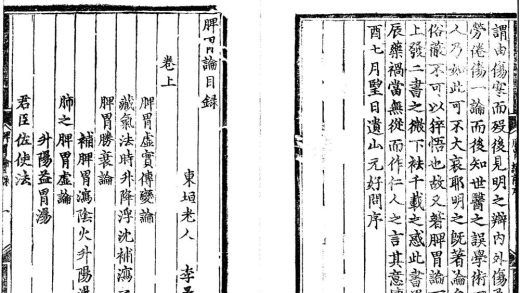 謂由傷寒而歿後見明之辯內外傷
勞倦傷一論而後知世醫之誤學術
人乃如此可不大哀耶明之既著論
俗蔽不可以猝悟也故又著脾胃論
上發二書之微下祛千載之惑此書
辰藥禍當無從而作仁人之言其意
酉七月望日遺山元好問序
脾胃論目錄
卷上
東垣老人 李
脾胃虛實傳變論
藏氣法時升降浮沈補瀉
脾胃勝衰論
補脾胃瀉陰火升陽湯
肺之脾胃虛論
升陽益胃湯
君臣佐使法